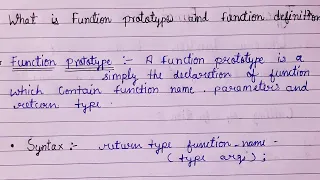 What is Function prototype and function definition
• Function prototype :- A function prototype is a
simply the declaration of function
which contain function name . parameters and
return type .
• Syntax :- return type function_name -
( type arg1 ) ;